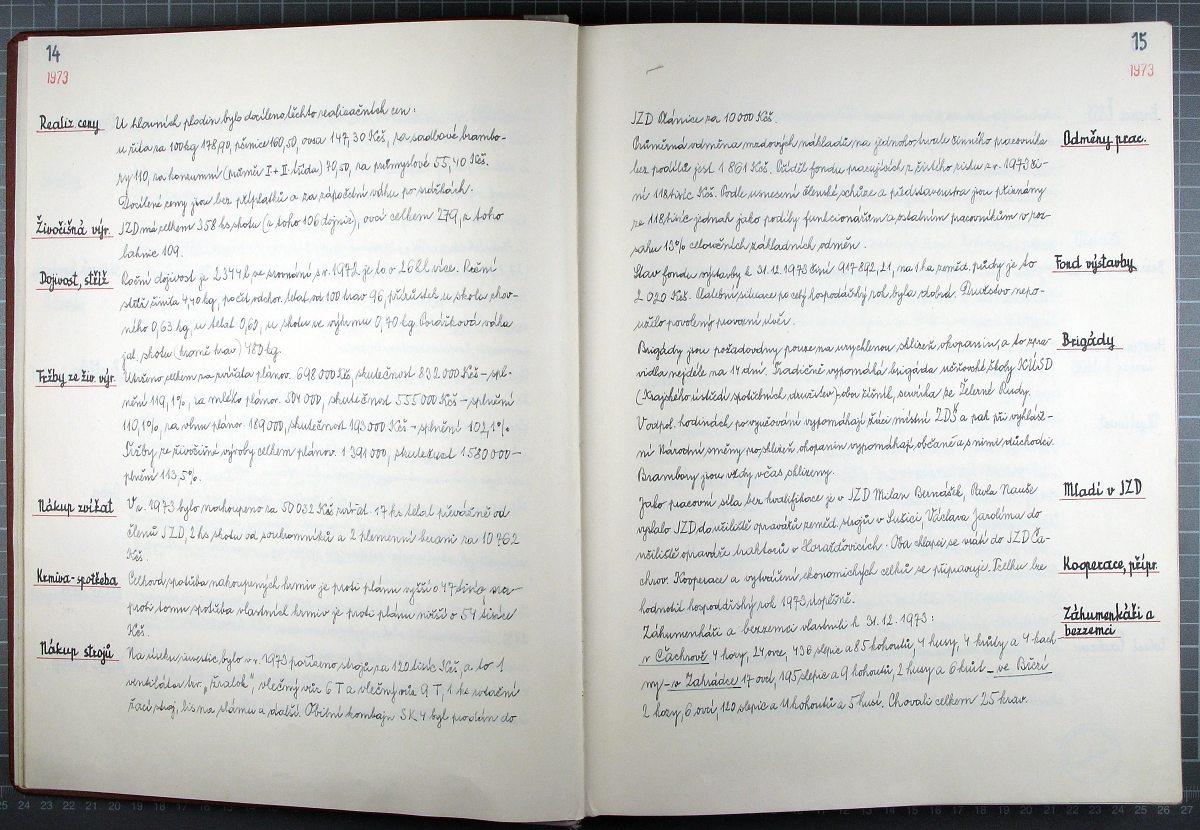 14
1973
Realiz. ceny
U hlavních plodin bylo docíleno těchto realizačních cen:
u žita za 100 kg 178,90, pšenice 160,50, ovsa 147,30 Kčs, za sadbové brambo-
ry 110, za konzumní (průměr I + II. třída) 70,50, za průmyslové 55,40 Kčs.
Docílené ceny jsou bez příplatků a za započtení váhu po srážkách.
Živočišná výr.
JZD má celkem 358 ks skotu (z toho 106 dojnic), ovcí celkem 279, z toho
bahnic 109.
Dojivost, stříž
Roční dojivost je 2344 l ve srovnání s r. 1972 je to o 268 l více. Roční
stříž činila 4,40 kg, počet odchov. telat od 100 krav 96, přírůstek u skotu chov-
ného 0,63 kg, u telat 0,60, u skotu ve výkrmu 0,70 kg. Porážková váha
jat. skotu (kromě krav) 480 kg.
Tržby ze živ. výr.
Utrženo celkem za zvířata plánov. 698 000 Kčs, skutečnost 832 000 Kčs – spl-
nění 119,1%, za mléko plánov. 504 000, skutečnost 555 000 Kčs – splnění
110,1%, za vlnu plánov. 189 000, skutečnost 193 000 Kčs – splnění 102,1%
Tržby ze živočišné výroby celkem plánov. 1 391 000, skutečnost 1 580 000 –
plnění 113,5%.
Nákup zvířat
V r. 1973 bylo nakoupeno za 50 032 Kčs zvířat. 17 ks telat převážně od
členů JZD, 2 ks skotu od soukromníků a 2 plemenní berani za 10 762
Kčs.
Krmiva - spotřeba
Celková spotřeba nakoupených krmiv je proti plánu vyšší o 47 tisíc
proti tomu spotřeba vlastních krmiv je proti plánu nižší o 54 tisíce
Kčs.
Nákup strojů
Na úseku investic bylo v r. 1973 pořízeno strojů za 120 tisíc Kčs, a to 1
ventilátor tzv. „žralok", vlečný vůz 6 T a vlečný vůz 9 T, 1 ks rotační
žací stroj, lis na slámu a další. Obilní kombajn SK 4 byl prodán do
15
1973
JZD Plánice za 10 000 Kčs.
Odměny prac.
Průměrná odměna mzdových nákladů na jednoho trvale činného pracovníka
bez podílů jest 1 861 Kčs. Příděl fondu pracujících z čistého zisku z r. 1973 či-
ní 118 tisíc Kčs. Podle usnesení členské schůze a představenstva jsou přiznány
ze 118 tisíc jednak jako podíly funkcionářům a ostatním pracovníkům v roz-
sahu 13% celoročních základních odměn.
Fond výstavby
Stav fondu výstavby k 31. 12. 1973 činí 917 892,21, na 1 ha zeměd. půdy je to
2 020 Kčs. Platební situace po celý hospodářský rok byla dobrá. Družstvo nepo-
užilo povolený provozní úvěr.
Brigády
Brigády jsou požadovány pouze na urychlenou sklizeň okopanin, a to zpra-
vidla nejdéle na 14 dní. Tradičně vypomáhá brigáda učňovské školy KÚSD
(Krajského ústředí spotřebních družstev) obor číšník, servírka ze Železné Rudy.
V odpol. hodinách po vyučování vypomáhají žáci místní ZDŠ a pak při vyhláše-
ní Národní směny pro sklizeň okopanin vypomáhají občané a s nimi důchodci.
Brambory jsou vždy včas sklizeny.
Mladí v JZD
Jako pracovní síla bez kvalifikace je v JZD Milan Bernášek, Pavla Nauše
vyslalo JZD do učiliště opravářů zeměd. strojů v Sušici, Václava Jarolíma do
učiliště opravářů traktorů v Horažďovicích. Oba chlapci se vrátí do JZD Ča-
chrov.
Kooperace, přípr.
Kooperace a vytváření ekonomických celků se připravuje. Celku lze
hodnotit hospodářský rok 1973 úspěšně.
Záhumenkáři a
bezzemci
Záhumenkáři a bezzemci vlastnili k 31. 12. 1973:
v Čachrově 4 kozy, 24 ovce, 436 slepic a 85 kohoutů, 4 husy, 4 krůty a 4 kach
ny – v Zahrádce 17 ovcí, 195 slepic a 9 kohoutů, 2 husy a 6 kuřat – ve Bížci
2 kozy, 6 ovcí, 120 slepic a 11 kohoutů a 5 husí. Chovali celkem 25 krav.